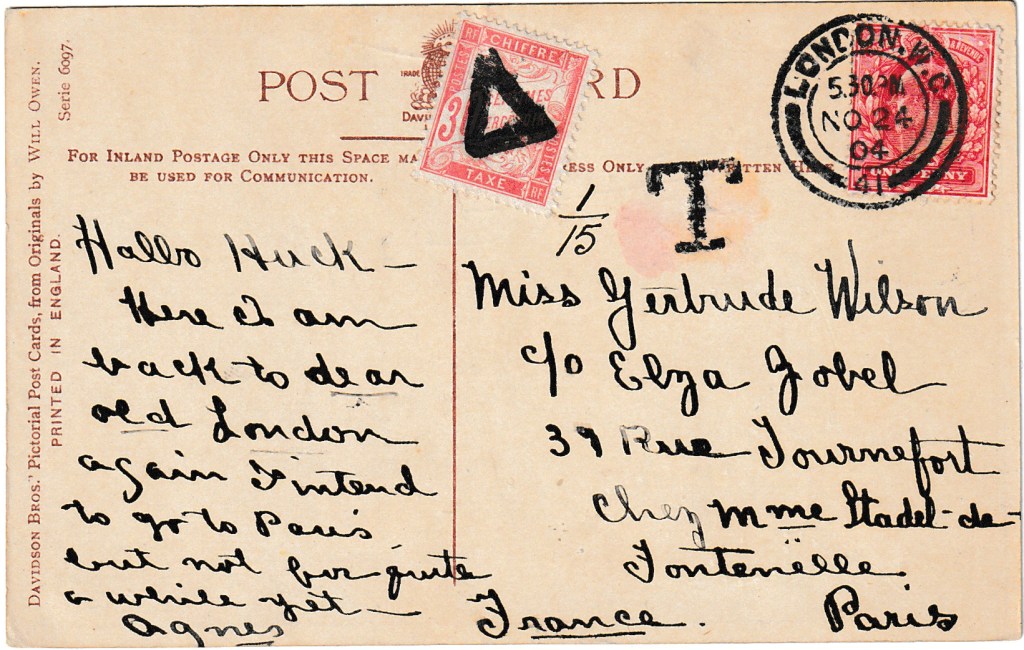 DAVIDSON BROS.' Pictorial Post Cards, from Originals by WILL OWEN.
Serie 6097.
PRINTED IN ENGLAND.
POST RD
TRADE
DAVI
FOR INLAND POSTAGE ONLY THIS SPACE MA
BE USED FOR COMMUNICATION.
ESS ONLY TTEN HE
RF CHIFFRE RF
POSTES
3
TAXE RF
T
LONDON. W.C
5.30PM
NO 24
04
41
& REVENUE
ONE PENNY
1/15
Hallo Huck –
Here I am
back to dear
old London
again I intend
to go to Paris
but not for quite
a while yet –
Agnes
Miss Gertrude Wilson
c/o Elza Gobel
39 Rue Tournefort
Chez Mme Stadel-de-
Fontenelle
France. Paris